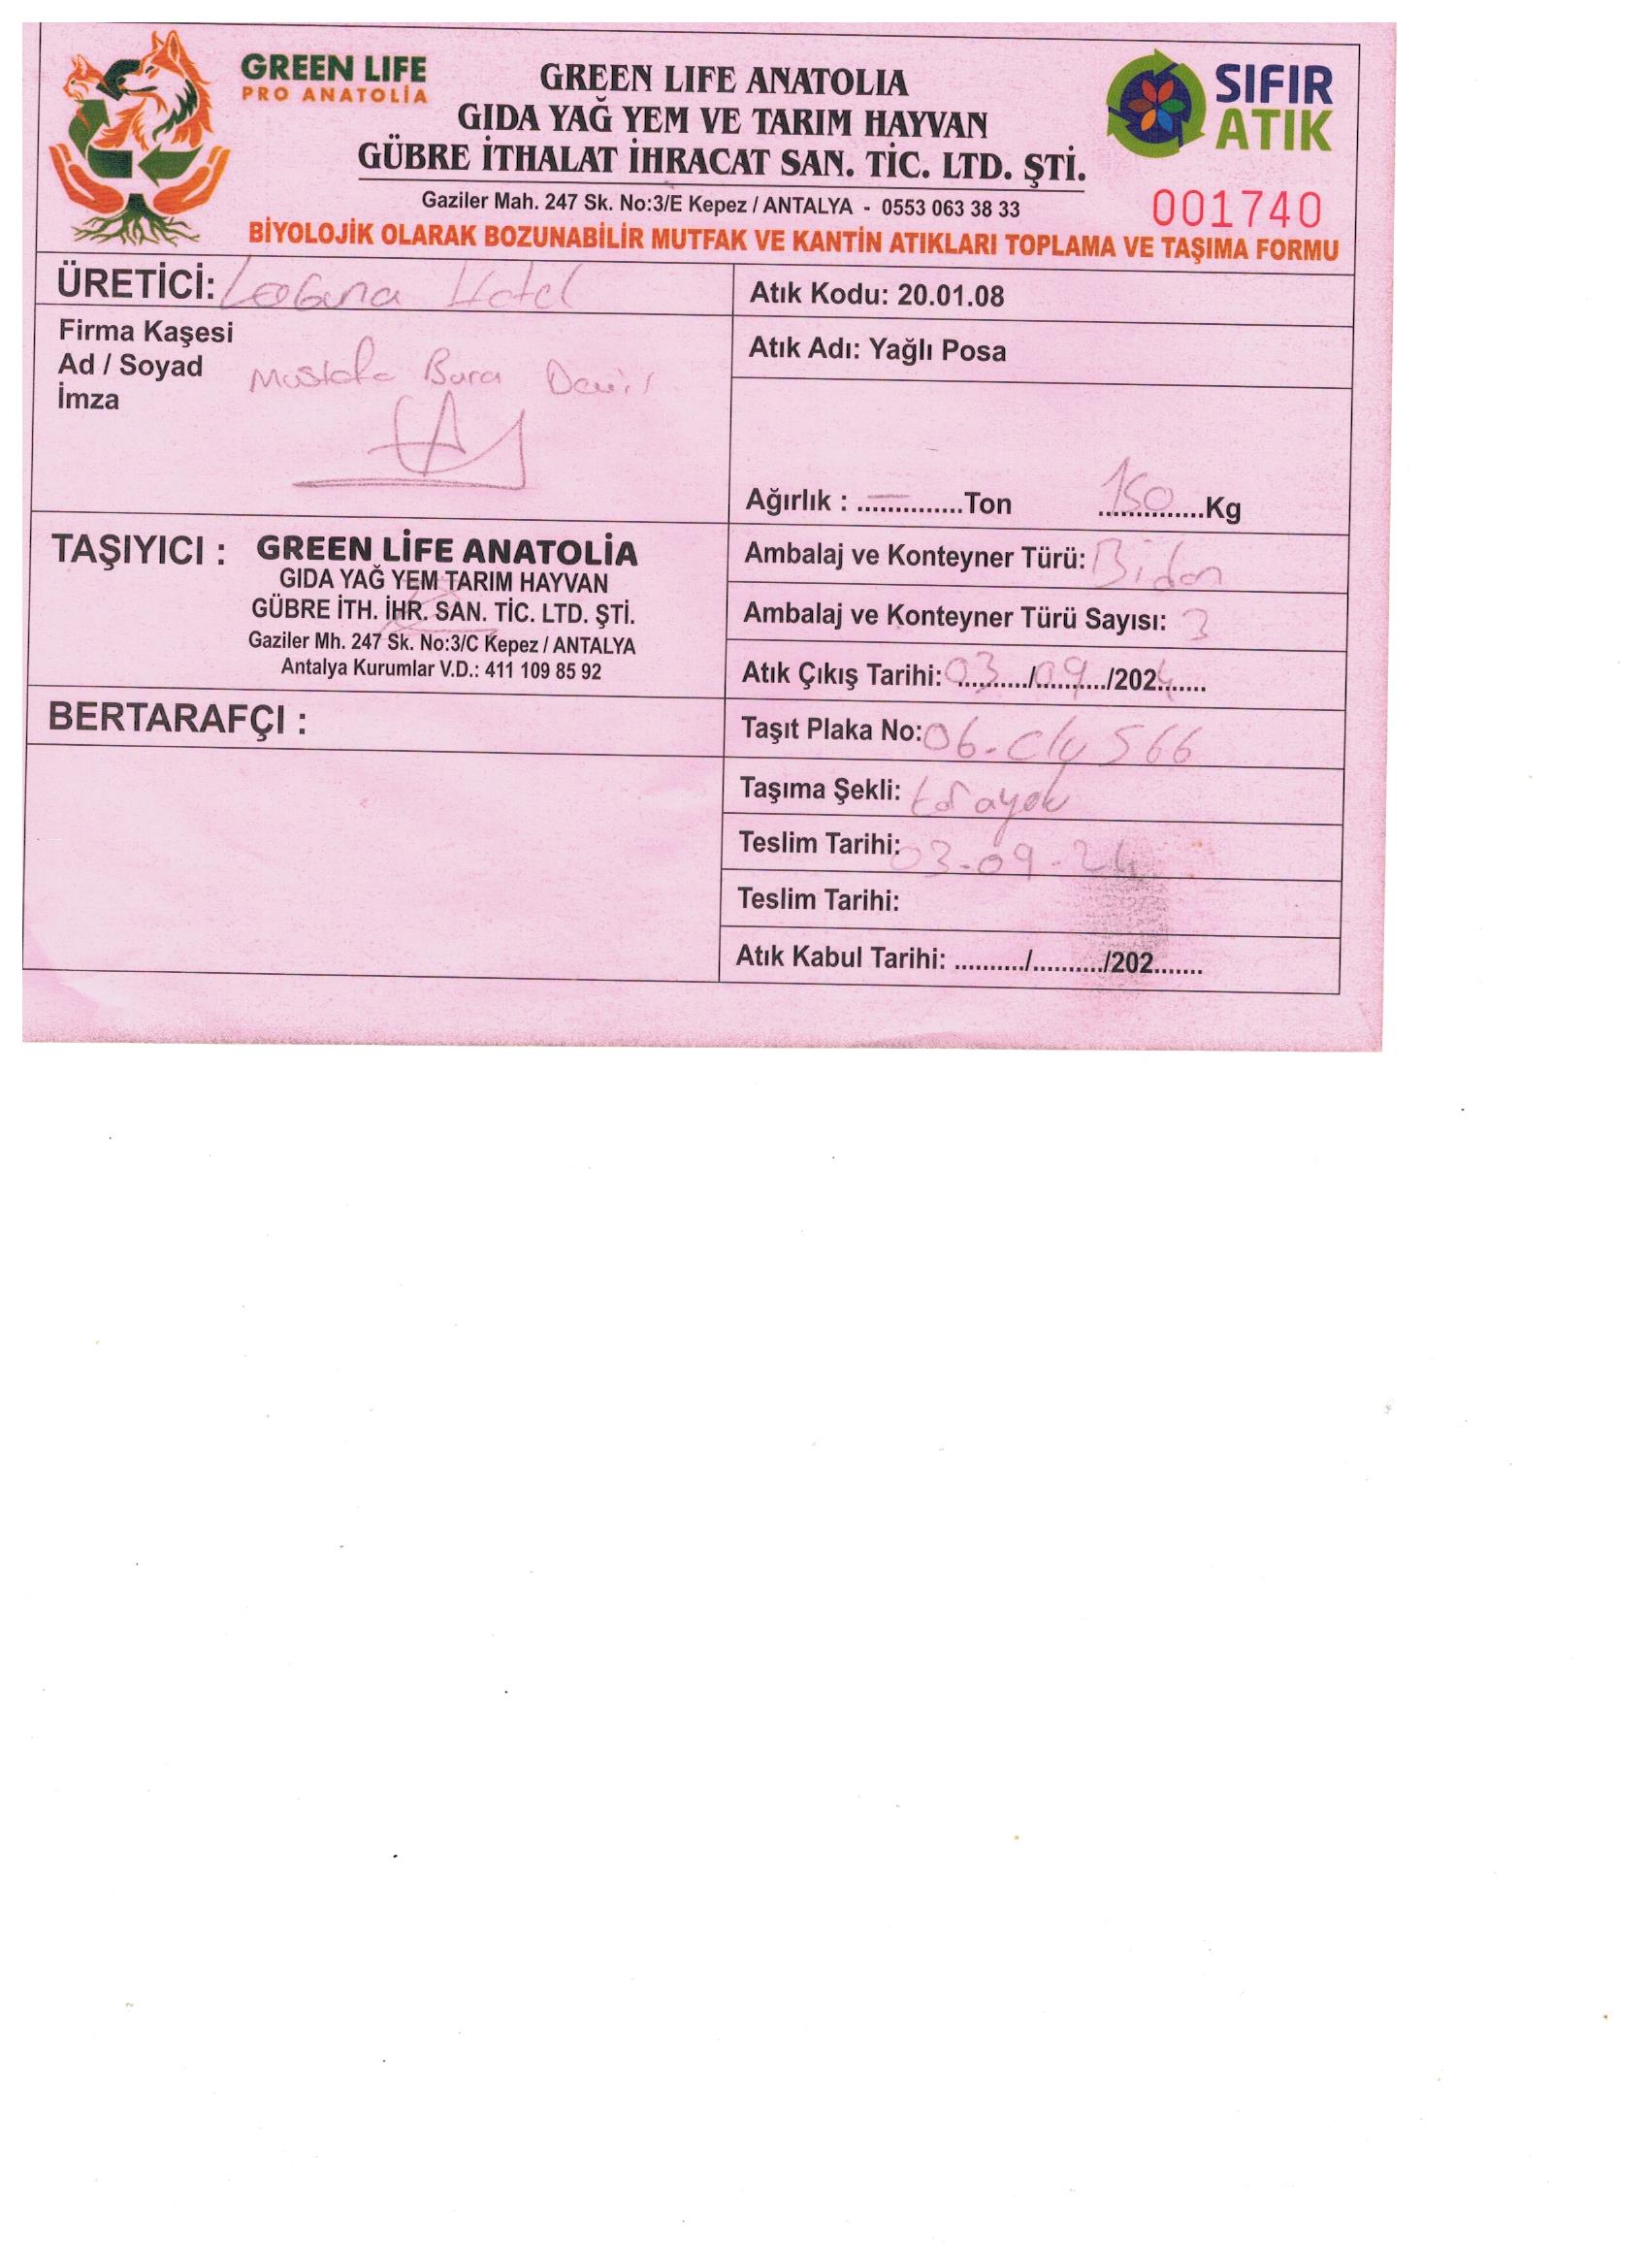 GREEN LIFE
PRO ANATOLİA
GREEN LIFE ANATOLIA
GIDA YAĞ YEM VE TARIM HAYVAN
GÜBRE İTHALAT İHRACAT SAN. TİC. LTD. ŞTİ.
Gaziler Mah. 247 Sk. No:3/E Kepez / ANTALYA - 0553 063 38 33
SIFIR
ATIK
001740
BİYOLOJİK OLARAK BOZUNABİLİR MUTFAK VE KANTİN ATIKLARI TOPLAMA VE TAŞIMA FORMU
ÜRETİCİ: Hotel
Firma Kaşesi
Ad / Soyad Mustafa
İmza
Atık Kodu: 20.01.08
Atık Adı: Yağlı Posa
Ağırlık : ..............Ton 150 Kg
TAŞIYICI : GREEN LİFE ANATOLİA
GIDA YAĞ YEM TARIM HAYVAN
GÜBRE İTH. İHR. SAN. TİC. LTD. ŞTİ.
Gaziler Mh. 247 Sk. No:3/C Kepez / ANTALYA
Antalya Kurumlar V.D.: 411 109 85 92
Ambalaj ve Konteyner Türü: Bidon
Ambalaj ve Konteyner Türü Sayısı: 3
Atık Çıkış Tarihi: 03/09/2024
BERTARAFÇI :
Taşıt Plaka No: 06
Taşıma Şekli:
Teslim Tarihi: 03-09-24
Teslim Tarihi:
Atık Kabul Tarihi: ........../........../202.......